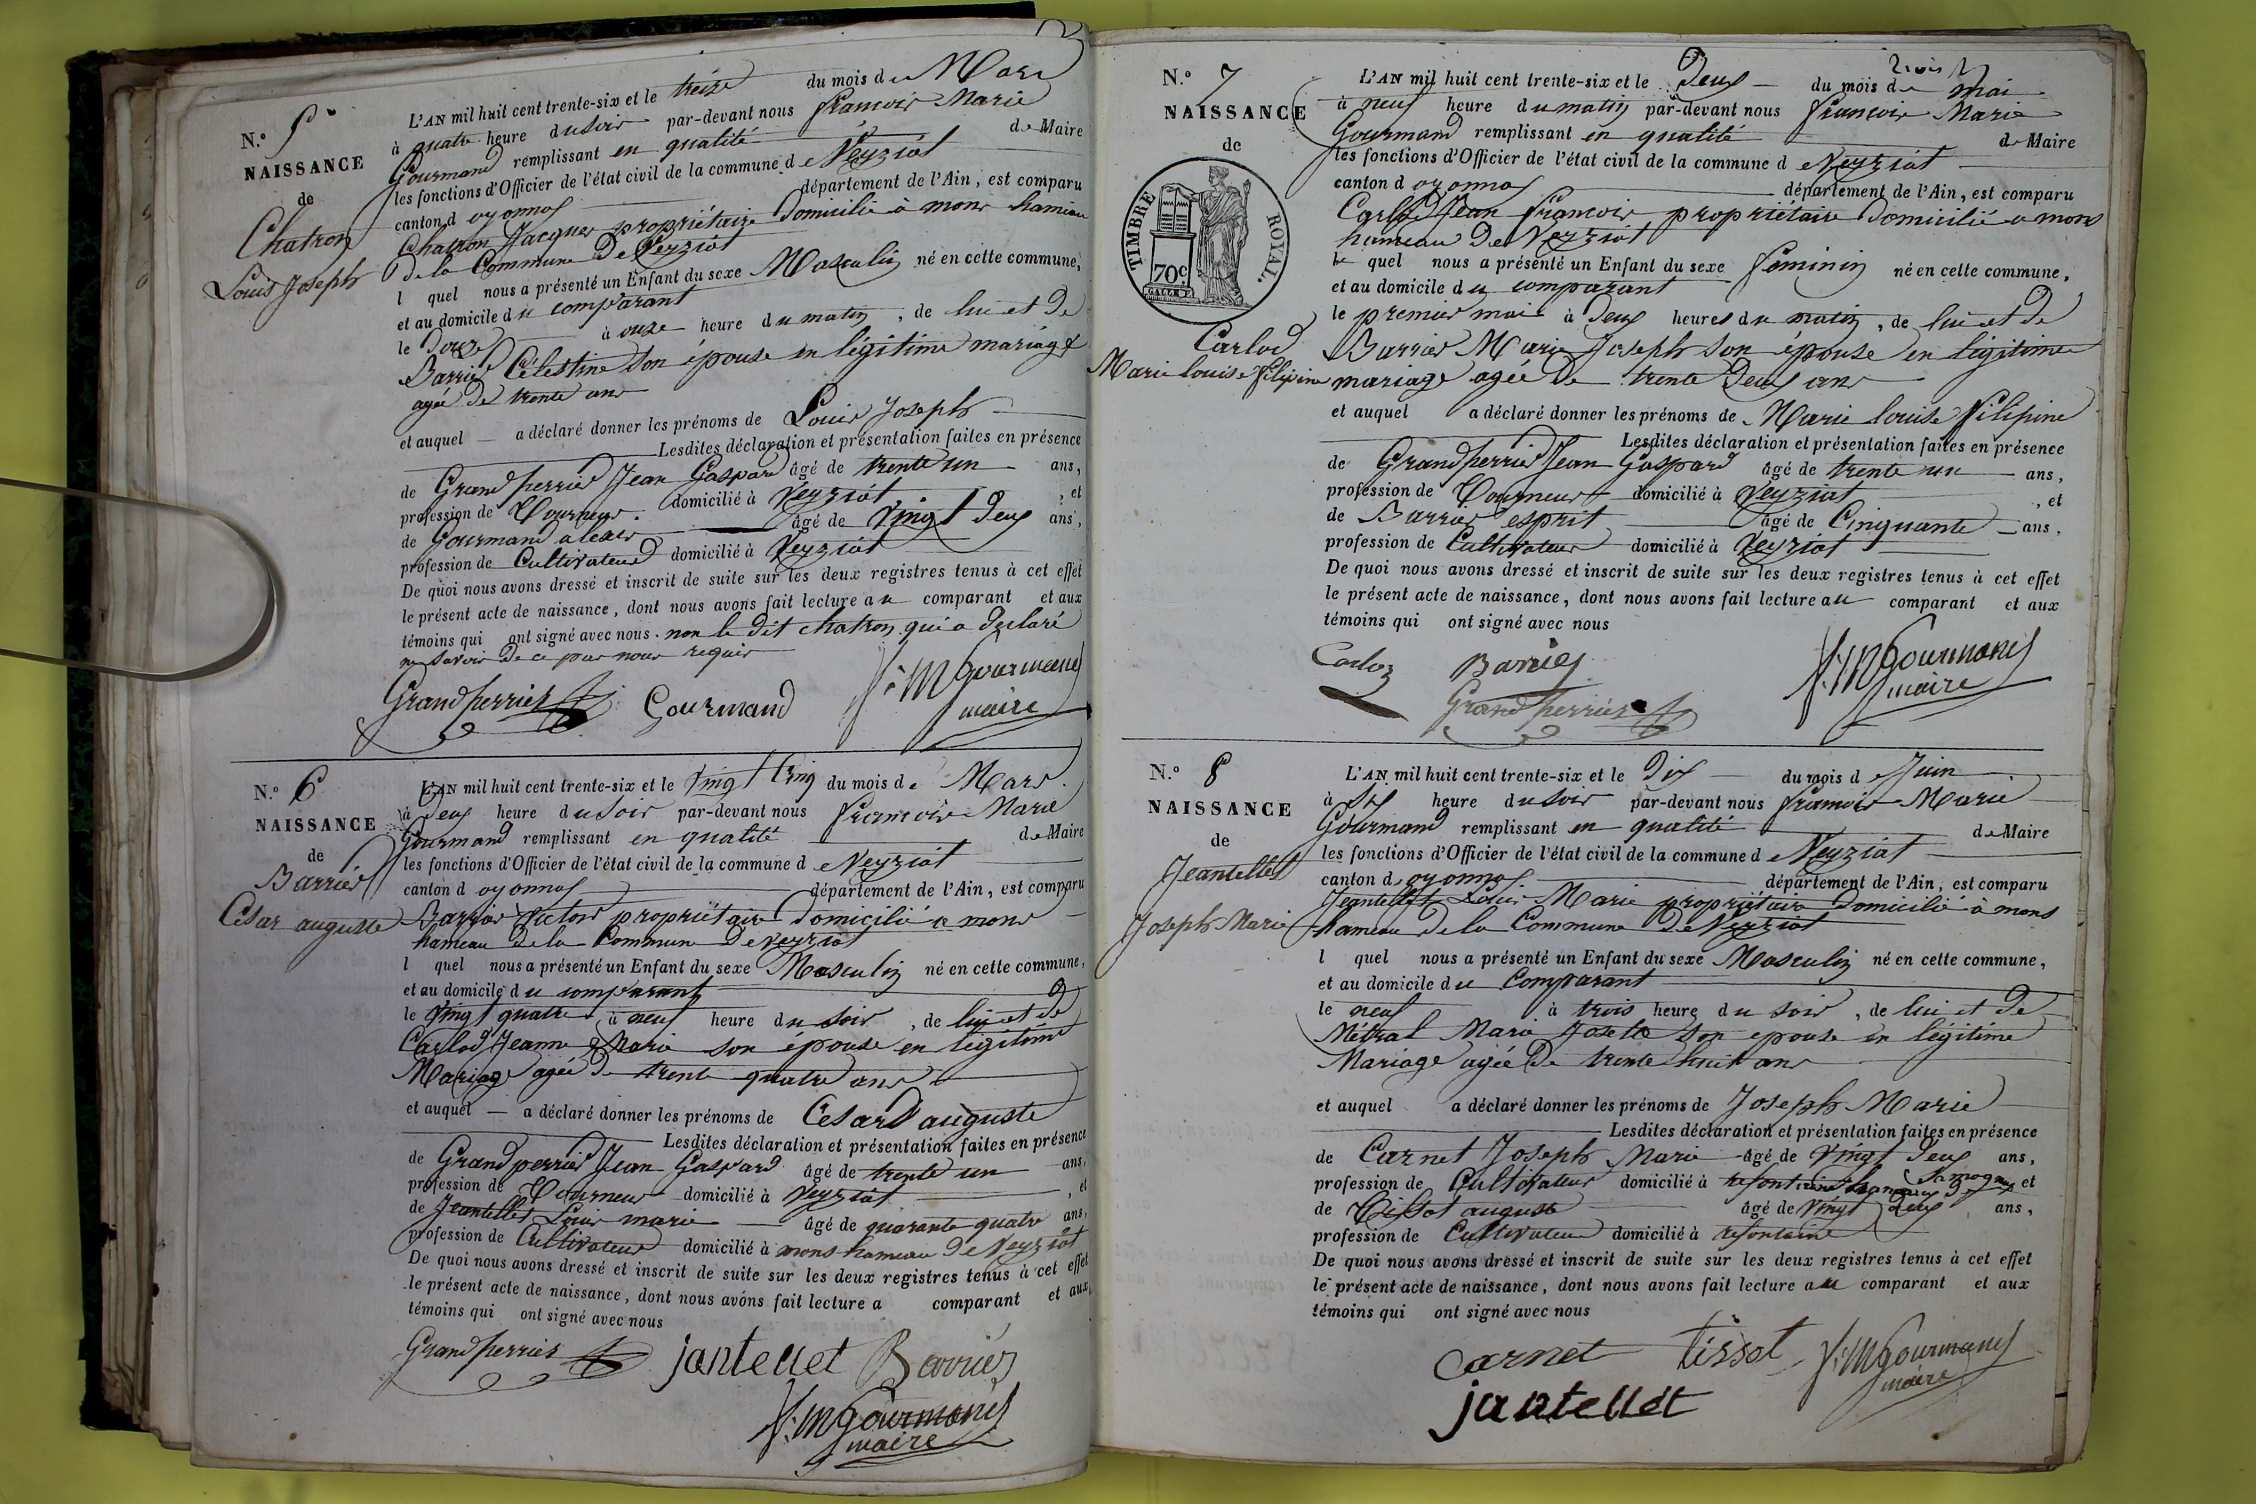 N.° 5
NAISSANCE
de
Chatron
Louis Joseph
L'AN mil huit cent trente-six et le treize du mois de Mars
à quatre heure du soir par-devant nous françois Marie
Gourmand remplissant en qualité de Maire
les fonctions d'Officier de l'état civil de la commune de Veyziat
canton d oyonnax département de l'Ain, est comparu
Chatron Jacques propriétaire domicilié à mons hameau
de la Commune de Veyziat
l quel nous a présenté un Enfant du sexe Masculin né en cette commune,
et au domicile du comparant
le douze à onze heure du matin, de lui et de
Barrier Célestine son épouse en légitime mariage
agée de trente ans
et auquel — a déclaré donner les prénoms de Louis Joseph
Lesdites déclaration et présentation faites en présence
de Grandperrier Jean Gaspard âgé de trente un ans,
profession de Tourneur domicilié à Veyziat, et
de Gourmand alexis âgé de vingt deux ans,
profession de Cultivateur domicilié à Veyziat
De quoi nous avons dressé et inscrit de suite sur les deux registres tenus à cet effet
le présent acte de naissance, dont nous avons fait lecture au comparant et aux
témoins qui ont signé avec nous. non le dit chatron qui a declaré
ne savoir de ce par nous requis
Grandperrier Gourmand f: M Gourmand
maire
N.° 6
NAISSANCE
de
Barrier
César auguste
L'AN mil huit cent trente-six et le vingt cinq du mois de Mars
à deux heure du soir par-devant nous françois Marie
Gourmand remplissant en qualité de Maire
les fonctions d'Officier de l'état civil de la commune de Veyziat
canton d oyonnax département de l'Ain, est comparu
Barrier Victor propriétaire domicilié a mons
hameau de la Commune de veyziat
l quel nous a présenté un Enfant du sexe Masculin né en cette commune,
et au domicile du comparant
le vingt quatre à neuf heure du soir, de lui et de
Carlod Jeanne Marie son épouse en légitime
Mariage agée de trente quatre ans
et auquel — a déclaré donner les prénoms de César auguste
Lesdites déclaration et présentation faites en présence
de Grandperrier Jean Gaspard âgé de trente un ans,
profession de Tourneur domicilié à Veyziat, et
de Jeantellet Louis marie âgé de quarante quatre ans,
profession de Cultivateur domicilié à mons hameau de Veyziat
De quoi nous avons dressé et inscrit de suite sur les deux registres tenus à cet effet
le présent acte de naissance, dont nous avons fait lecture a comparant et aux
témoins qui ont signé avec nous
Grandperrier jantellet Barrier
f: M Gourmand
maire
N.° 7
NAISSANCE
de
TIMBRE ROYAL.
70c.
Carlod
Marie louise filipine
L'AN mil huit cent trente-six et le Deux du mois de mai
à neuf heure du matin par-devant nous françois Marie
Gourmand remplissant en qualité de Maire
les fonctions d'Officier de l'état civil de la commune de Veyziat
canton d oyonnax département de l'Ain, est comparu
Carlod Jean françois propriétaire domicilié a mons
hameau de Veyziat
le quel nous a présenté un Enfant du sexe féminin né en cette commune,
et au domicile du comparant
le premier mai à deux heures du matin, de lui et de
Barrier Marie Joseph son épouse en légitime
mariage agée de trente deux ans
et auquel a déclaré donner les prénoms de Marie louise filipine
Lesdites déclaration et présentation faites en présence
de Grandperrier Jean Gaspard âgé de trente un ans,
profession de Tourneur domicilié à Veyziat, et
de Barrier esprit âgé de Cinquante ans,
profession de Cultivateur domicilié à Veyziat
De quoi nous avons dressé et inscrit de suite sur les deux registres tenus à cet effet
le présent acte de naissance, dont nous avons fait lecture au comparant et aux
témoins qui ont signé avec nous
Carloz Barrier f: M Gourmand
Grandperrier maire
N.° 8
NAISSANCE
de
Jeantellet
Joseph Marie
L'AN mil huit cent trente-six et le dix du mois d Juin
à six heure du soir par-devant nous françois Marie
Gourmand remplissant en qualité de Maire
les fonctions d'Officier de l'état civil de la commune de Veyziat
canton d oyonnax département de l'Ain, est comparu
Jeantellet Louis Marie propriétaire domicilié à mons
hameau de la Commune de Veyziat
l quel nous a présenté un Enfant du sexe Masculin né en cette commune,
et au domicile du Comparant
le neuf à trois heure du soir, de lui et de
Métral Marie Josette son epouse en légitime
Mariage agée de trente huit ans
et auquel a déclaré donner les prénoms de Joseph Marie
Lesdites déclaration et présentation faites en présence
de Carnet Joseph Marie âgé de vingt deux ans,
profession de Cultivateur domicilié à hameau et
de Tissot auguste âgé de vingt deux ans,
profession de Cultivateur domicilié à
De quoi nous avons dressé et inscrit de suite sur les deux registres tenus à cet effet
le présent acte de naissance, dont nous avons fait lecture au comparant et aux
témoins qui ont signé avec nous
Carnet tissot f: M Gourmand
maire
jantellet